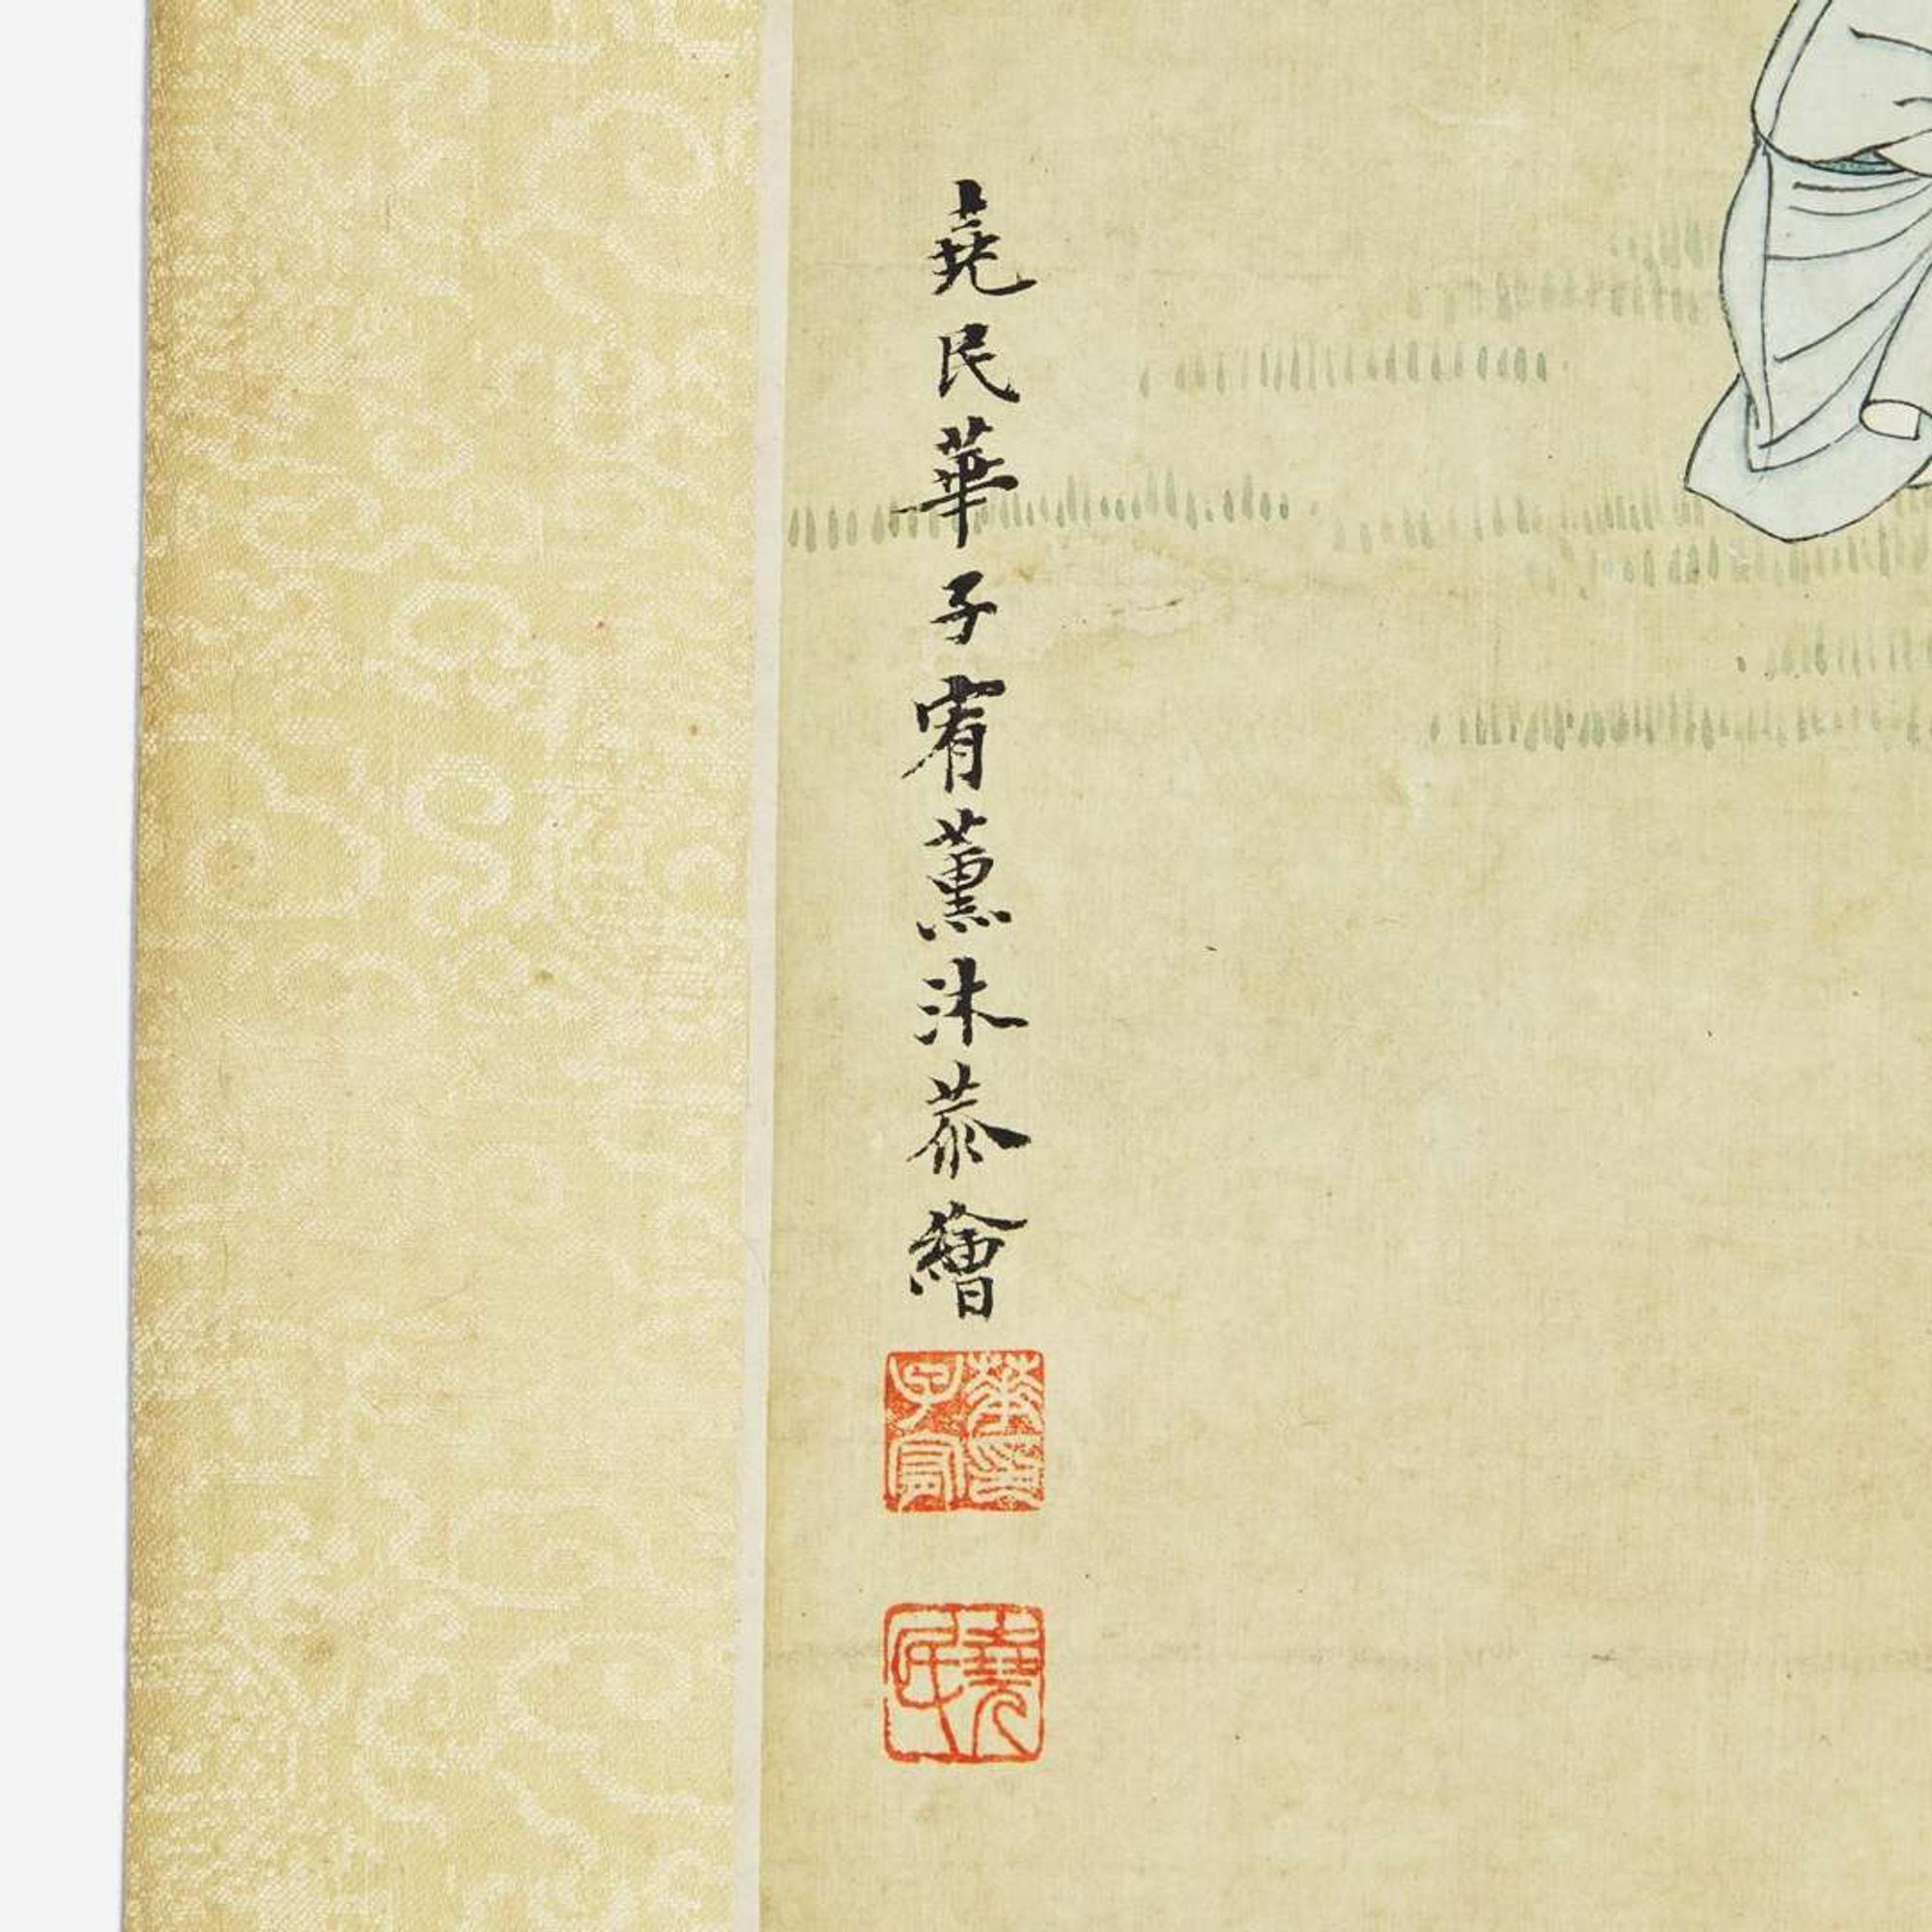 堯民華子宥薰沐恭繪
華印子宥
堯民